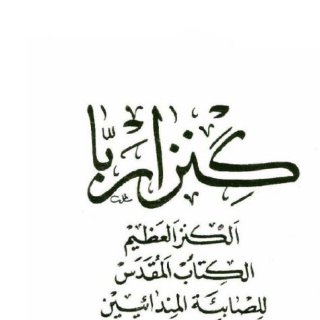 گنزا ربّا
الكنز العظيم
الكتاب المقدس
للصابئة المندائيين